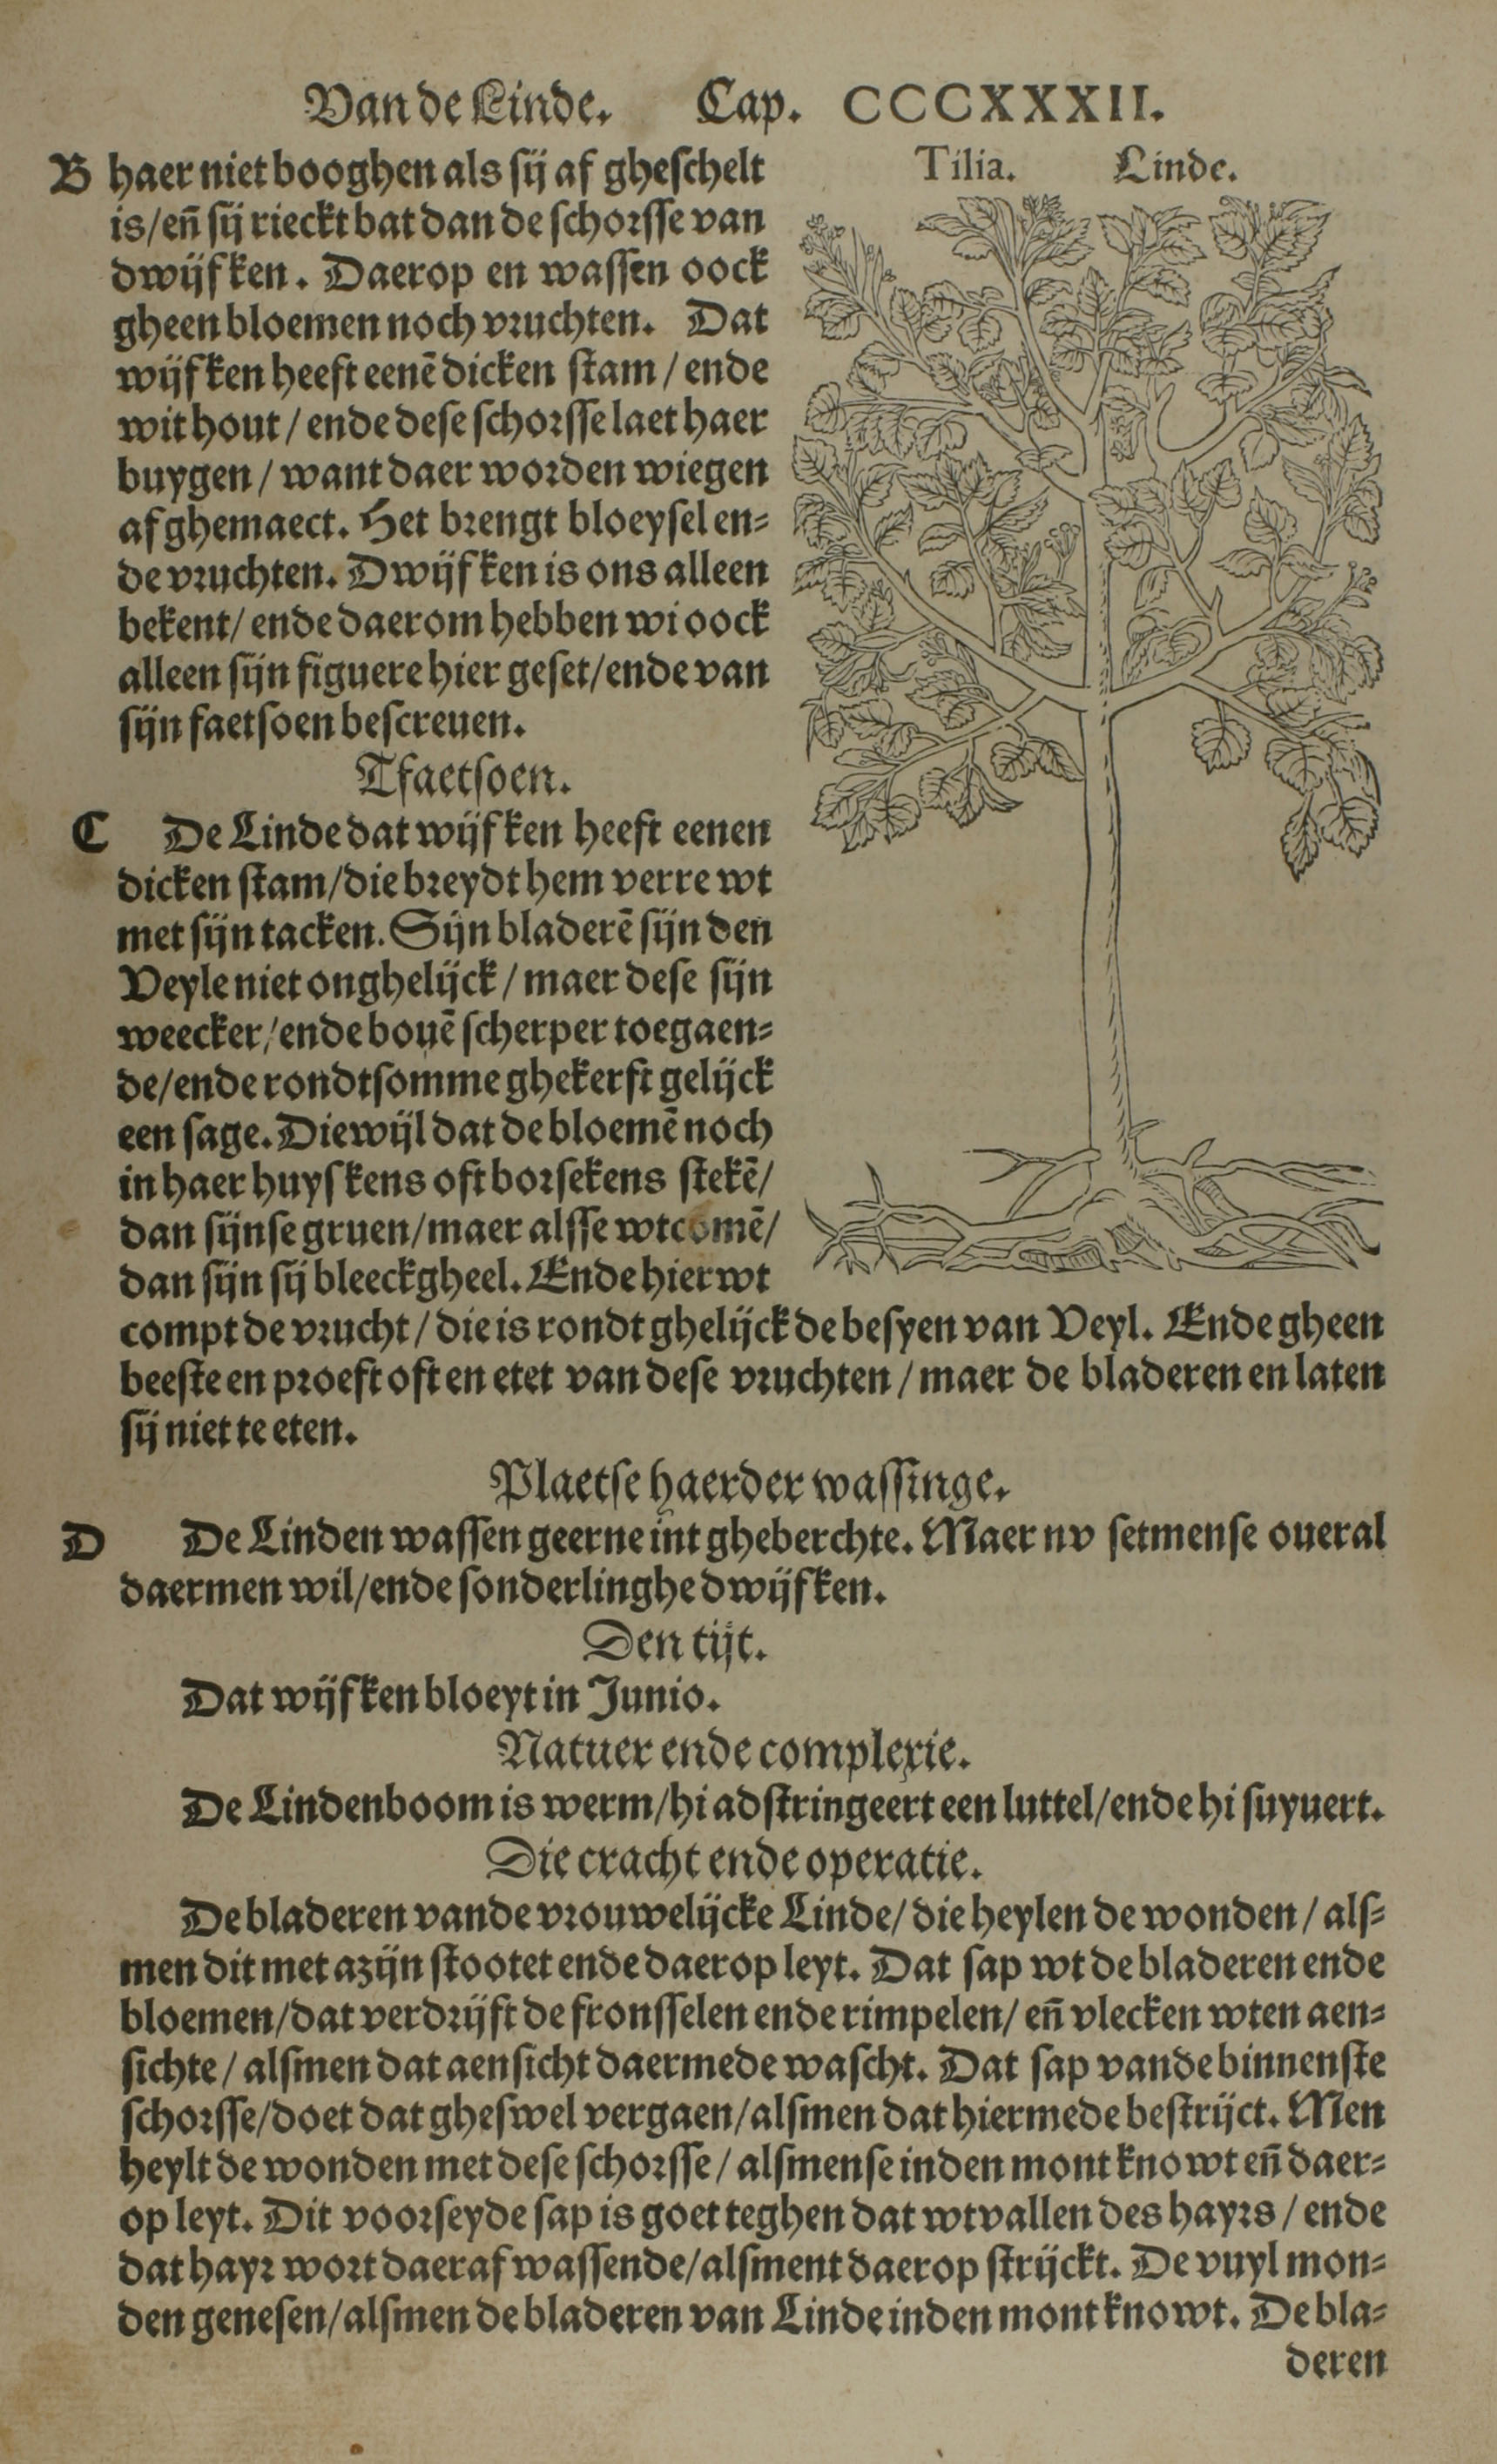 Van de Linde. Cap. CCCXXXII.
Tilia. Linde.
B haer niet booghen als sij af gheschelt
is/en̄ sij rieckt bat dan de schorsse van
dwijfken. Daerop en wassen oock
gheen bloemen noch vruchten. Dat
wijfken heeft eenē dicken stam/ende
wit hout/ende dese schorsse laet haer
buygen/want daer worden wiegen
af ghemaect. Het brengt bloeysel en-
de vruchten. Dwijfken is ons alleen
bekent/ende daerom hebben wi oock
alleen sijn figuere hier geset/ende van
sijn faetsoen bescreuen.
Tfaetsoen.
C De Linde dat wijfken heeft eenen
dicken stam/die breydt hem verre wt
met sijn tacken. Sijn bladerē sijn den
Veyle niet onghelijck/maer dese sijn
weecker/ende bouē scherper toegaen-
de/ende rondtsomme ghekerft gelijck
een sage. Diewijl dat de bloemē noch
in haer huyskens oft borsekens stekē/
dan sijnse gruen/maer alsse wtcomē/
dan sijn sij bleeckgheel. Ende hier wt
compt de vrucht/die is rondt ghelijck de besyen van Veyl. Ende gheen
beeste en proeft oft en etet van dese vruchten/maer de bladeren en laten
sij niet te eten.
Plaetse haerder wassinge.
D De Linden wassen geerne int gheberchte. Maer nv setmense oueral
daermen wil/ende sonderlinghe dwijfken.
Den tijt.
Dat wijfken bloeyt in Junio.
Natuer ende complexie.
De Lindenboom is werm/hi adstringeert een luttel/ende hi suyuert.
Die cracht ende operatie.
De bladeren vande vrouwelijcke Linde/die heylen de wonden/als-
men dit met azijn stootet ende daerop leyt. Dat sap wt de bladeren ende
bloemen/dat verdrijft de fronsselen ende rimpelen/en̄ vlecken wten aen-
sichte/alsmen dat aensicht daermede wascht. Dat sap vande binnenste
schorsse/doet dat gheswel vergaen/alsmen dat hiermede bestrijct. Men
heylt de wonden met dese schorsse/alsmense inden mont knowt en̄ daer-
op leyt. Dit voorseyde sap is goet teghen dat wtvallen des hayrs/ende
dat hayr wort daeraf wassende/alsment daerop strijckt. De vuyl mon-
den genesen/alsmen de bladeren van Linde inden mont knowt. De bla-
deren